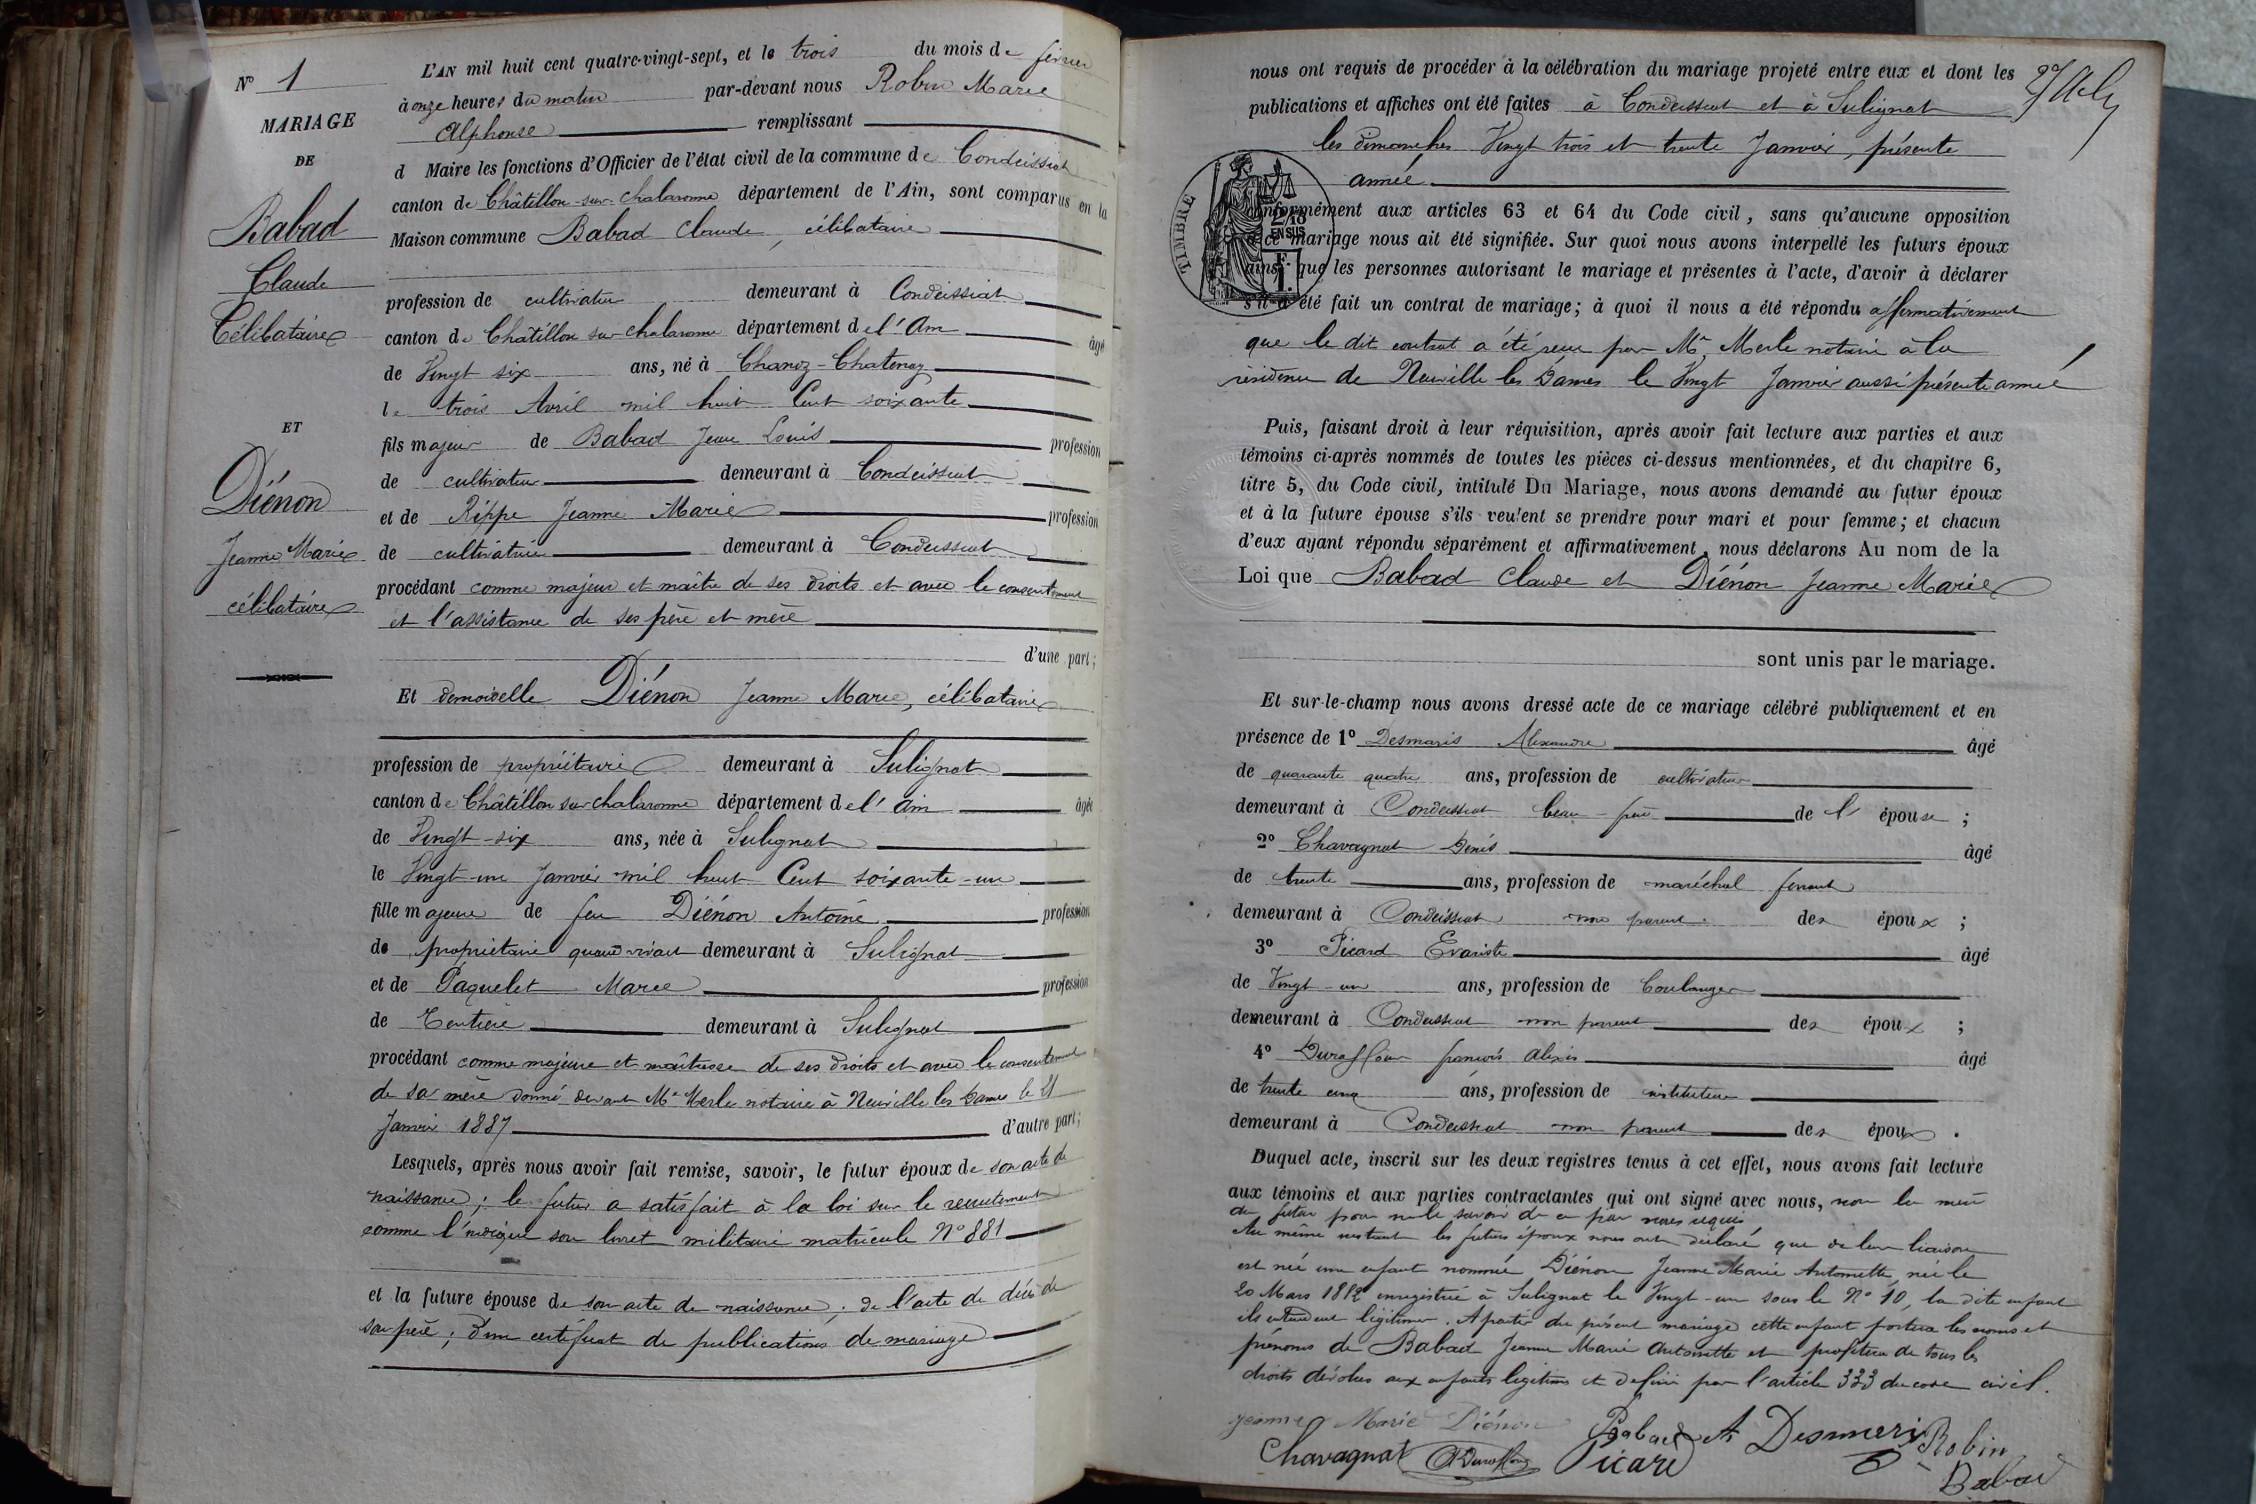 N° 1
MARIAGE
DE
Babad
Claude
Célibataire
ET
Diénon
Jeanne Marie
célibataire
L'AN mil huit cent quatre-vingt-sept, et le trois du mois de février
à onze heures du matin par-devant nous Robin Marie
Alphonse remplissant
d Maire les fonctions d'Officier de l'état civil de la commune de Condeissiat
canton de Châtillon-sur-Chalaronne département de l'Ain, sont comparus en la
Maison commune Babad Claude, célibataire
profession de cultivateur demeurant à Condeissiat
canton de Châtillon sur Chalaronne département de l'Ain âgé
de Vingt six ans, né à Chanoz-Chatenay
le trois Avril mil huit Cent soixante
fils majeur de Babad Jean Louis profession
de cultivateur demeurant à Condeissiat
et de Rippe Jeanne Marie profession
de cultivatrice demeurant à Condeissiat
procédant comme majeur et maître de ses droits et avec le consentement
et l'assistance de ses père et mère
d'une part;
Et demoiselle Diénon Jeanne Marie, célibataire
profession de propriétaire demeurant à Sulignat
canton de Châtillon sur Chalaronne département de l'Ain âgée
de Vingt-six ans, née à Sulignat
le Vingt-un Janvier mil huit Cent soixante-un
fille majeure de feu Diénon Antoine profession
de propriétaire quand vivait demeurant à Sulignat
et de Paquelet Marie profession
de Rentière demeurant à Sulignat
procédant comme majeure et maîtresse de ses droits et avec le consentement
de sa mère donné devant Me Merle notaire à Neuville les Dames le 21
Janvier 1887 d'autre part;
Lesquels, après nous avoir fait remise, savoir, le futur époux de son acte de
naissance; le futur a satisfait à la loi sur le recrutement
comme l'indique son livret militaire matricule N° 881
et la future épouse de son acte de naissance; de l'acte de décès de
son père; d'un certificat de publications de mariage
nous ont requis de procéder à la célébration du mariage projeté entre eux et dont les
publications et affiches ont été faites à Condeissiat et à Sulignat
les dimanches Vingt trois et trente Janvier, présente
année
TIMBRE
2/10
EN SUS
conformément aux articles 63 et 64 du Code civil, sans qu'aucune opposition
à ce mariage nous ait été signifiée. Sur quoi nous avons interpellé les futurs époux
ainsi que les personnes autorisant le mariage et présentes à l'acte, d'avoir à déclarer
s'il a été fait un contrat de mariage; à quoi il nous a été répondu affirmativement
que le dit contrat a été reçu par Me Merle notaire à la
résidence de Neuville les Dames le Vingt Janvier aussi présente année
Puis, faisant droit à leur réquisition, après avoir fait lecture aux parties et aux
témoins ci-après nommés de toutes les pièces ci-dessus mentionnées, et du chapitre 6,
titre 5, du Code civil, intitulé Du Mariage, nous avons demandé au futur époux
et à la future épouse s'ils veulent se prendre pour mari et pour femme; et chacun
d'eux ayant répondu séparément et affirmativement, nous déclarons Au nom de la
Loi que Babad Claude et Diénon Jeanne Marie
sont unis par le mariage.
Et sur-le-champ nous avons dressé acte de ce mariage célébré publiquement et en
présence de 1° Desmaris Alexandre âgé
de quarante quatre ans, profession de cultivateur
demeurant à Condeissiat beau-père de l' épouse;
2° Chavagnat Denis âgé
de trente ans, profession de maréchal ferrant
demeurant à Condeissiat non parent des époux;
3° Picard Evariste âgé
de Vingt-un ans, profession de boulanger
demeurant à Condeissiat non parent des époux;
4° Duraffour françois alexis âgé
de trente cinq ans, profession de instituteur
demeurant à Condeissiat non parent des époux.
Duquel acte, inscrit sur les deux registres tenus à cet effet, nous avons fait lecture
aux témoins et aux parties contractantes qui ont signé avec nous, non la mère
du futur pour ne le savoir de ce par nous requis
Au même instant les futurs époux nous ont déclaré que de leur liaison
est né une enfant nommée Diénon Jeanne Marie Antoinette, née le
20 Mars 1882 enregistrée à Sulignat le Vingt-un sous le N° 10, la dite enfant
ils entendent légitimer. A partir du présent mariage cette enfant portera les noms et
prénoms de Babad Jeanne Marie Antoinette et profitera de tous les
droits dévolus aux enfants légitimes et défini par l'article 333 du code civil.
Jeanne Marie Diénon Babad A Desmeris Robin
Chavagnat ADuraffour Picard Babad